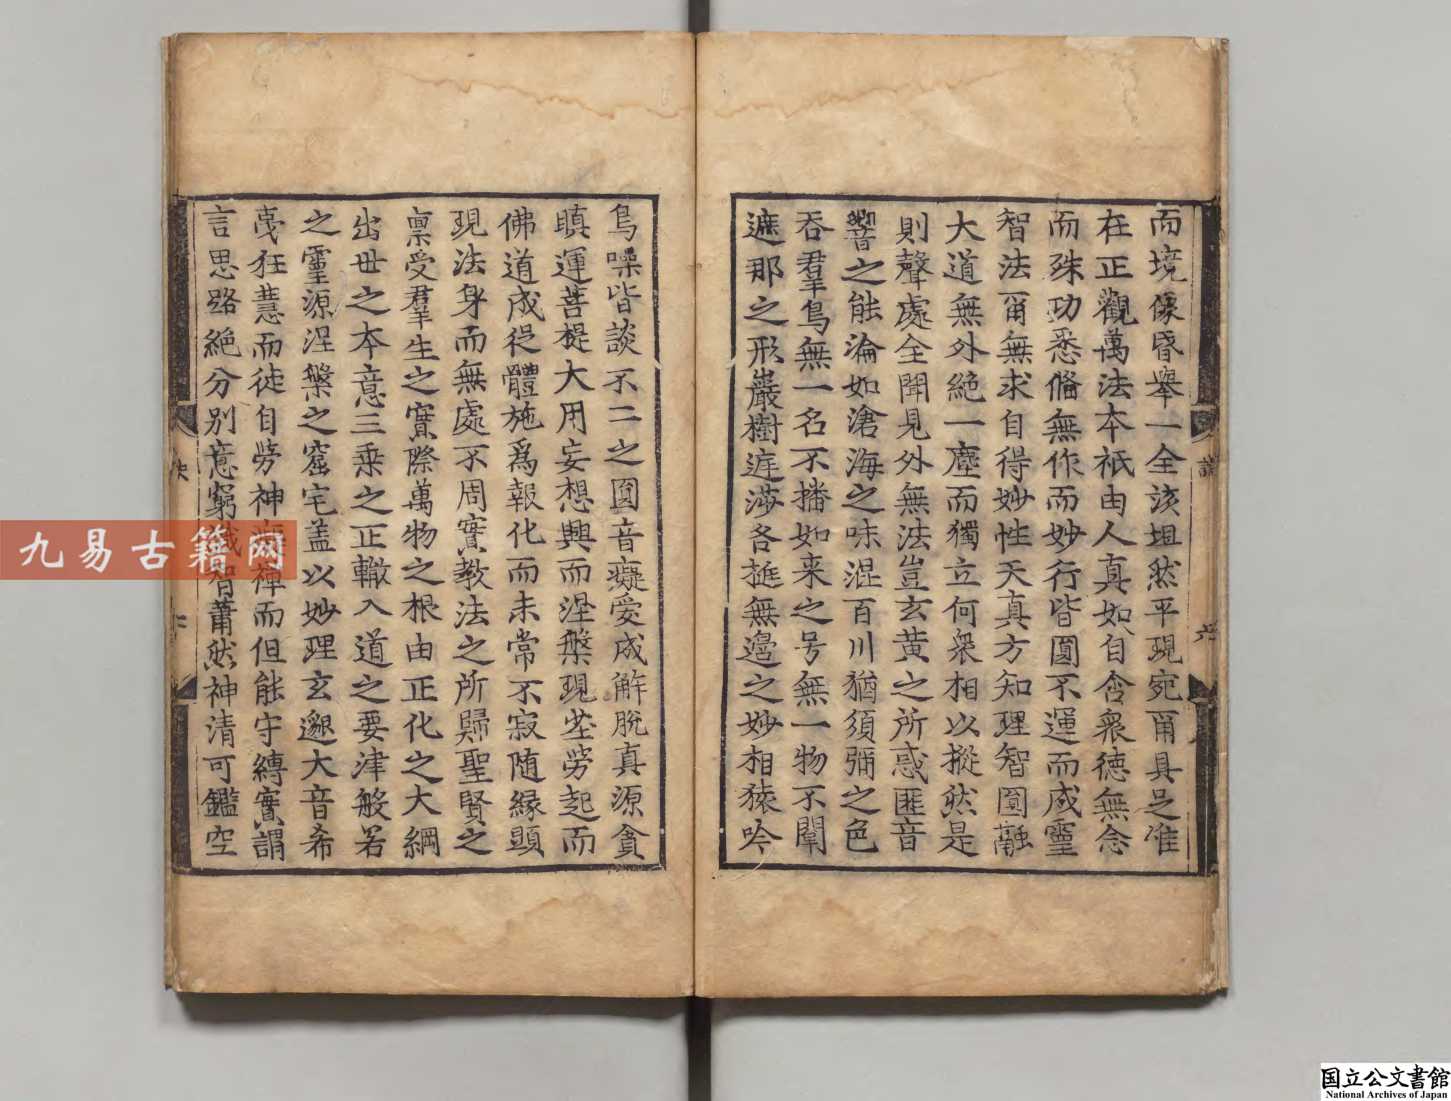 而境像昏舉一全該坦然平現宛甭具足唯
在正觀萬法本祇由人真如自含衆德無念
而殊功悉俻無作而妙行皆圓不運而成靈
智法甭無求自得妙性天真方知理智圓融
大道無外絶一塵而獨立何衆相以摐然是
則聲處全聞見外無法豈玄黃之所惑匪音
響之能淪如滄海之味混百川猶須彌之色
吞羣鳥無一名不播如来之号無一物不闡
遮那之形巖樹庭莎各挺無邊之妙相猿吟
鳥噪皆談不二之圓音癡愛成解脫真源貪
瞋運菩提大用妄想興而涅槃現塵勞起而
佛道成従體施爲報化而未常不寂随縁顯
現法身而無處不周實教法之所歸聖賢之
禀受羣生之實際萬物之根由正化之大綱
出世之本意三乘之正轍入道之要津般若
之靈源涅槃之窟宅盖以妙理玄邈大音希
夐狂慧而徒自勞神禪而但能守縛實謂
言思路絶分别意窮識智蕭然神清可鑑空
九易古籍网
国立公文書館
National Archives of Japan